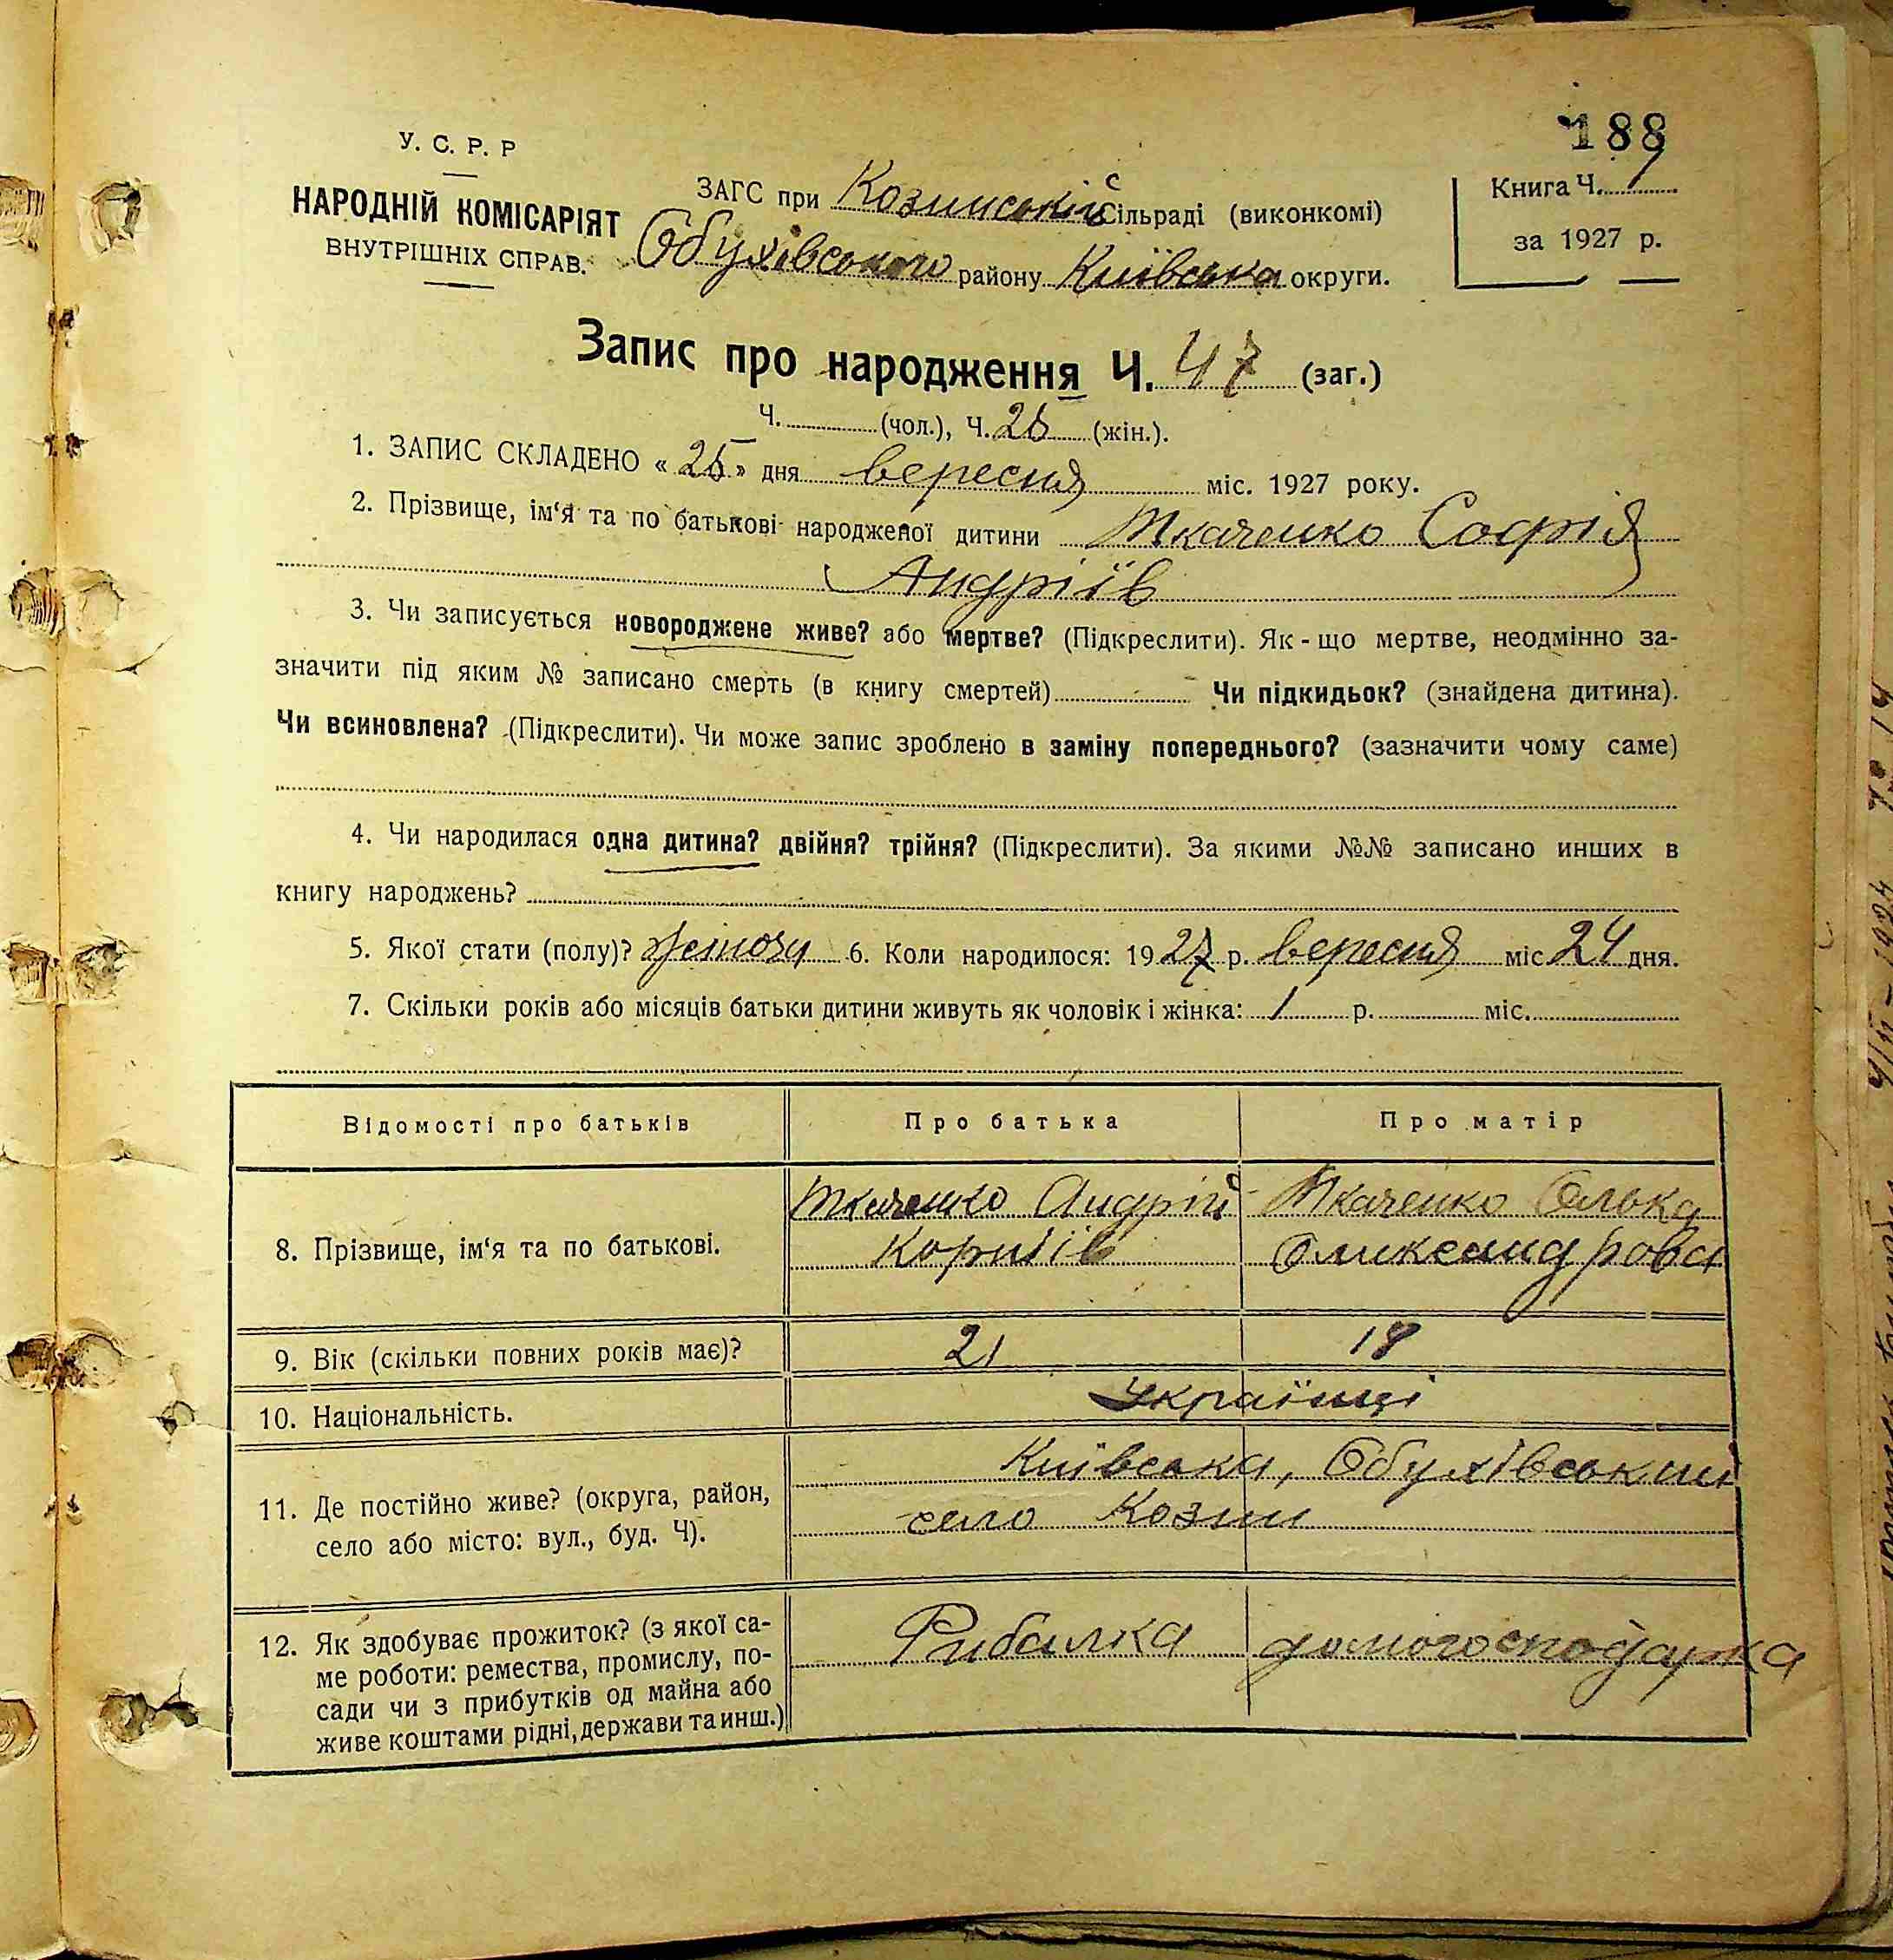 188
У. С. Р. Р
НАРОДНІЙ КОМІСАРІЯТ
ВНУТРІШНІХ СПРАВ.
ЗАГС при Козинській Сільраді (виконкомі)
Обухівського району Київська округи.
Книга Ч. 1
за 1927 р.
Запис про народження Ч. 47 (заг.)
Ч. (чол.), Ч. 25 (жін.).
1. ЗАПИС СКЛАДЕНО « 25 » дня вересня міс. 1927 року.
2. Прізвище, ім‘я та по батькові народженої дитини Ткаченко Софія
Андріїв
3. Чи записується новороджене живе? або мертве? (Підкреслити). Як - що мертве, неодмінно за-
значити під яким № записано смерть (в книгу смертей) Чи підкидьок? (знайдена дитина).
Чи всиновлена? (Підкреслити). Чи може запис зроблено в заміну попереднього? (зазначити чому саме)
4. Чи народилася одна дитина? двійня? трійня? (Підкреслити). За якими №№ записано инших в
книгу народжень?
5. Якої стати (полу)? жіночи 6. Коли народилося: 1927 р. вересня міс 24 дня.
7. Скільки років або місяців батьки дитини живуть як чоловік і жінка: 1 р. міс.
Відомості про батьків Про батька Про матір
8. Прізвище, ім‘я та по батькові.
Ткаченко Андрій
Корніїв
Ткаченко Олька
Олександрова
9. Вік (скільки повних років має)? 21 18
10. Національність. Українці
11. Де постійно живе? (округа, район,
село або місто: вул., буд. Ч).
Київська, Обухівський
село Козин
12. Як здобуває прожиток? (з якої са-
ме роботи: ремества, промислу, по-
сади чи з прибутків од майна або
живе коштами рідні, держави та инш.)
Рибалка домогосподарка